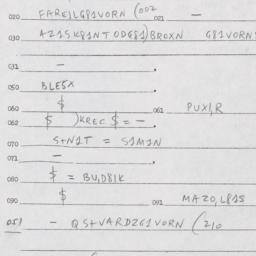 020 FAREILG81VORN (002 021 —
030 AZ1SK81NTODG81)BROXN G81VORNS
031 —
050 BLESX
060 $ 061 PUX1,R
062 $ )KREC $ = —
070 S+N1T = S1M1N
071 —
080 $ = BU,D81K
090 $ 091 MAZO,L81S
051 — QS+VARDZG1VORN (210